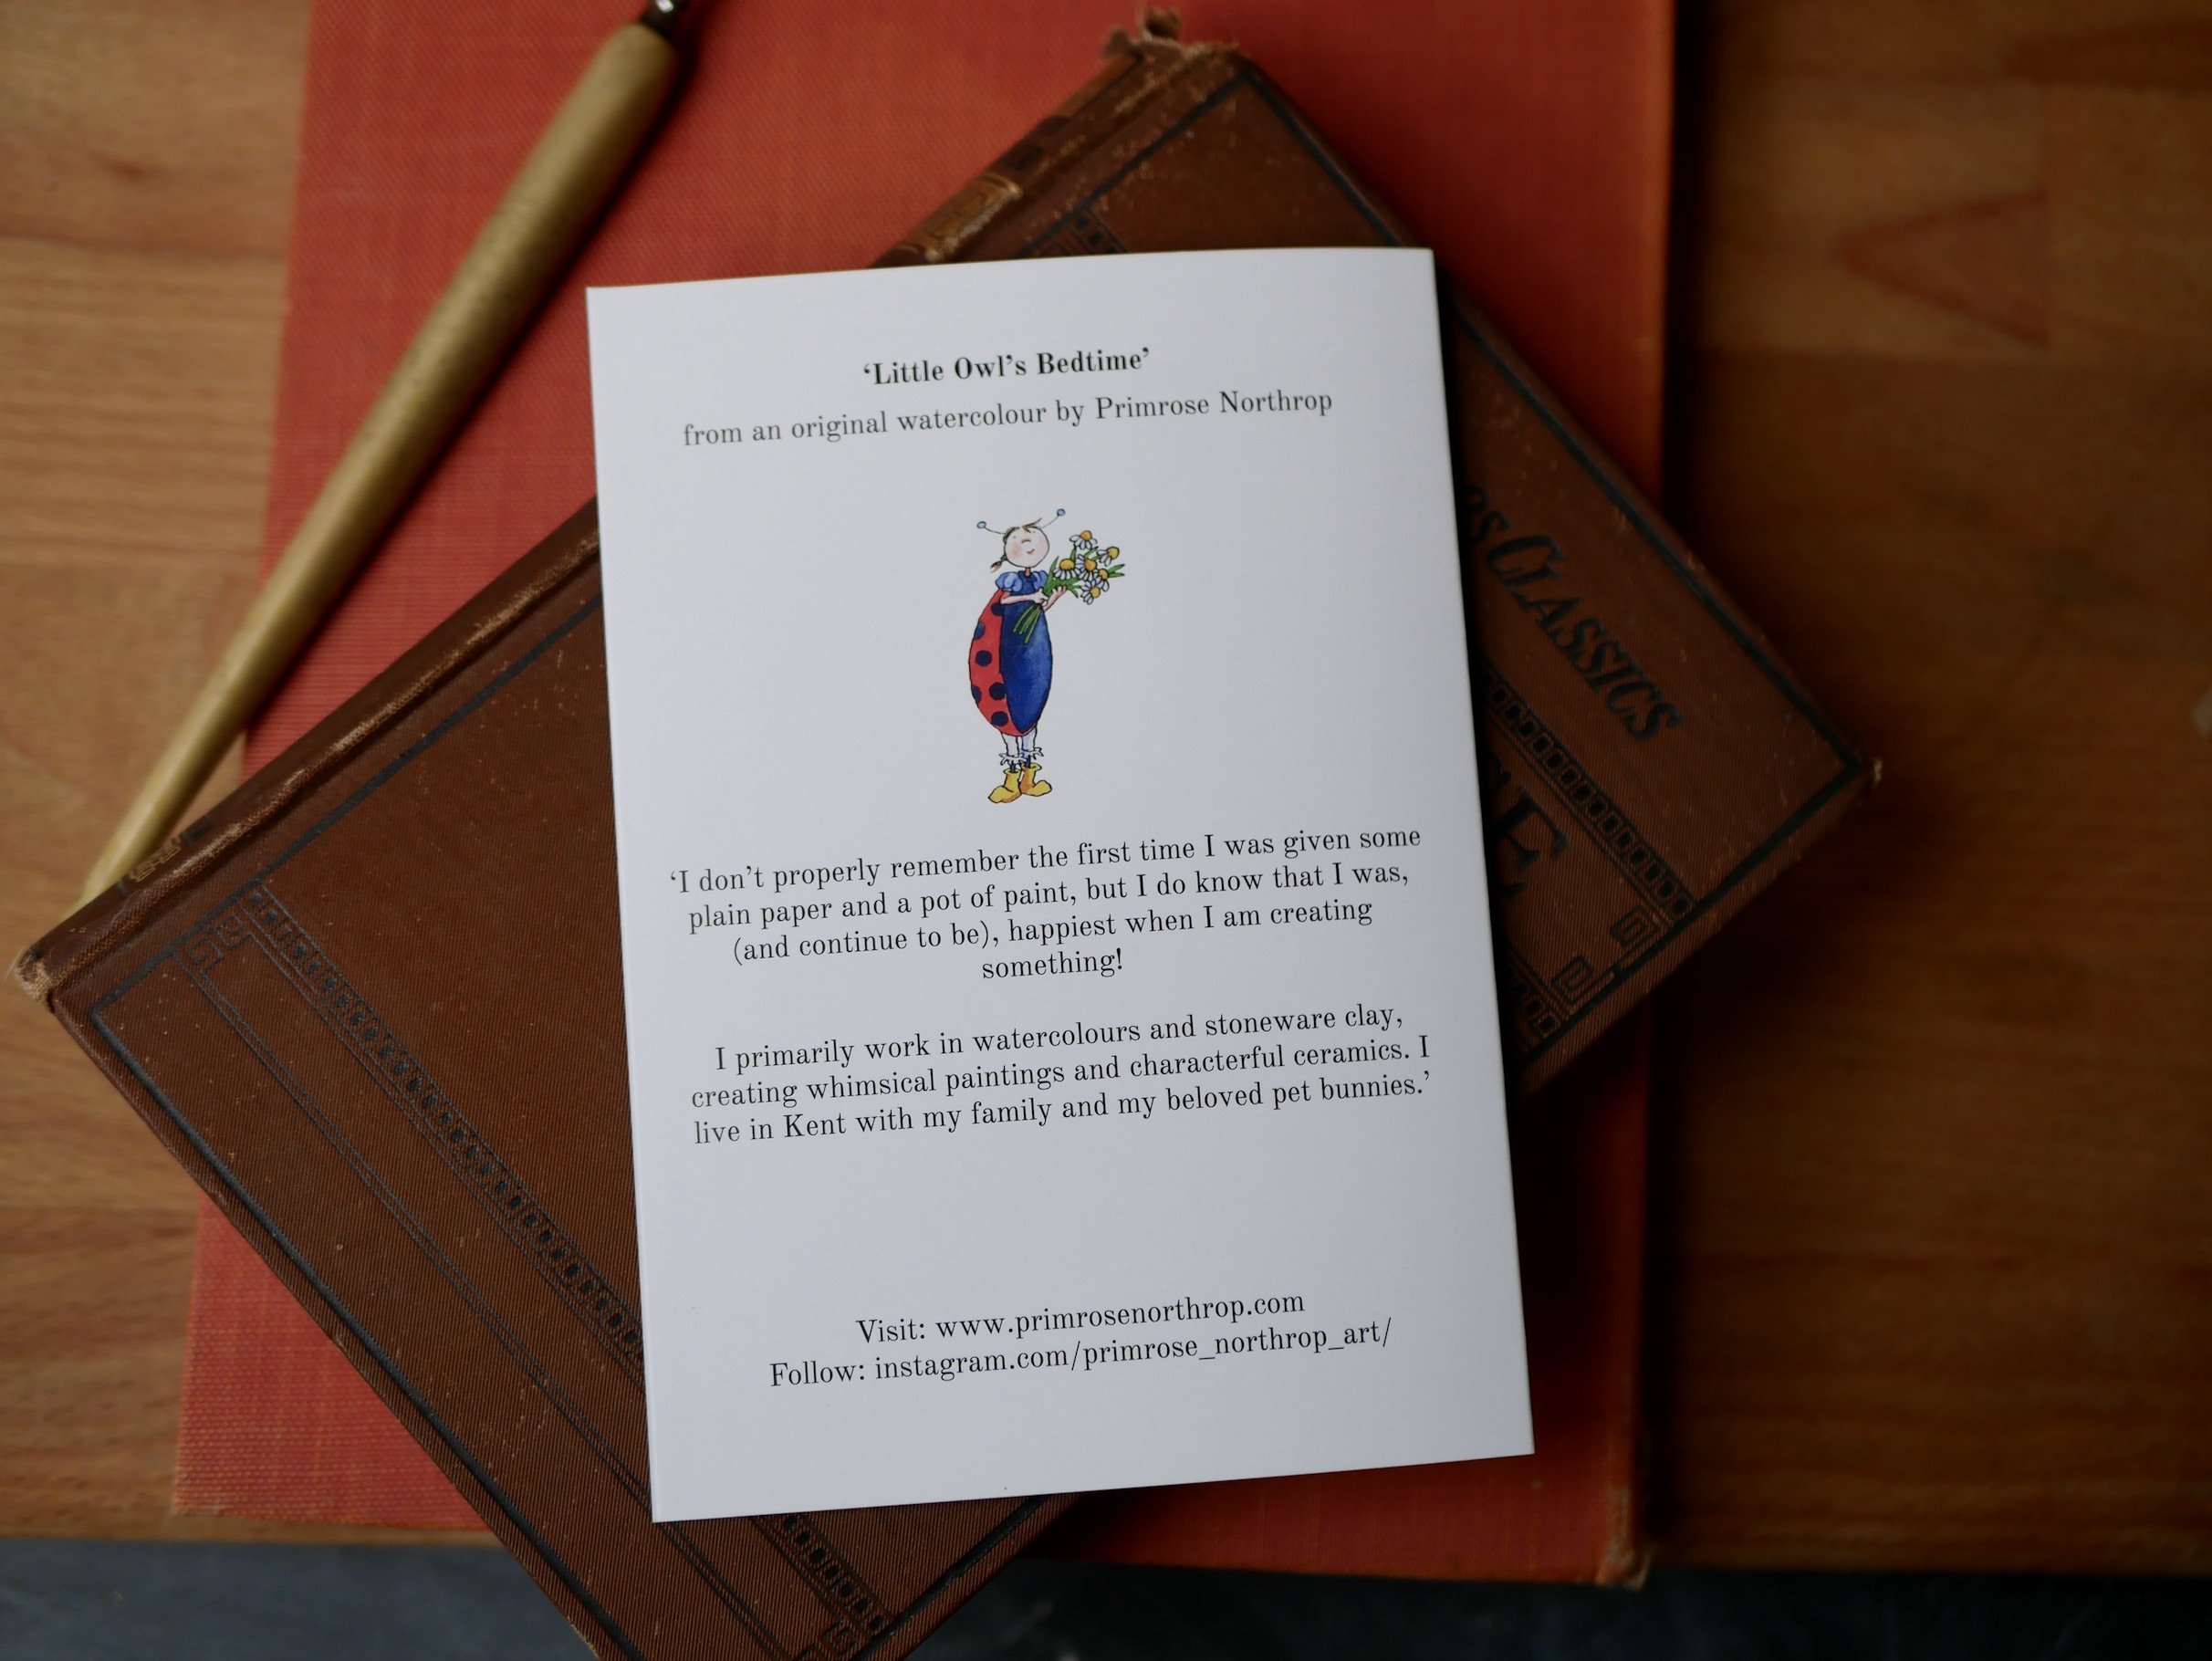 ‘Little Owl’s Bedtime’
from an original watercolour by Primrose Northrop
‘I don’t properly remember the first time I was given some
plain paper and a pot of paint, but I do know that I was,
(and continue to be), happiest when I am creating
something!
I primarily work in watercolours and stoneware clay,
creating whimsical paintings and characterful ceramics. I
live in Kent with my family and my beloved pet bunnies.’
Visit: www.primrosenorthrop.com
Follow: instagram.com/primrose_northrop_art/
CLASSICS